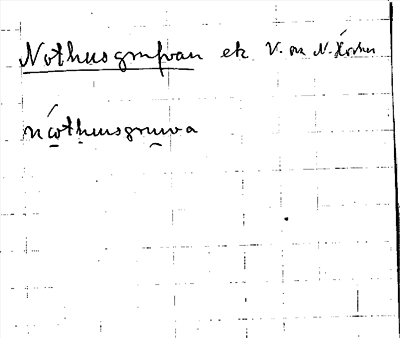 Nothusgrufvan ek V. om N. Hörken
nothusgruva